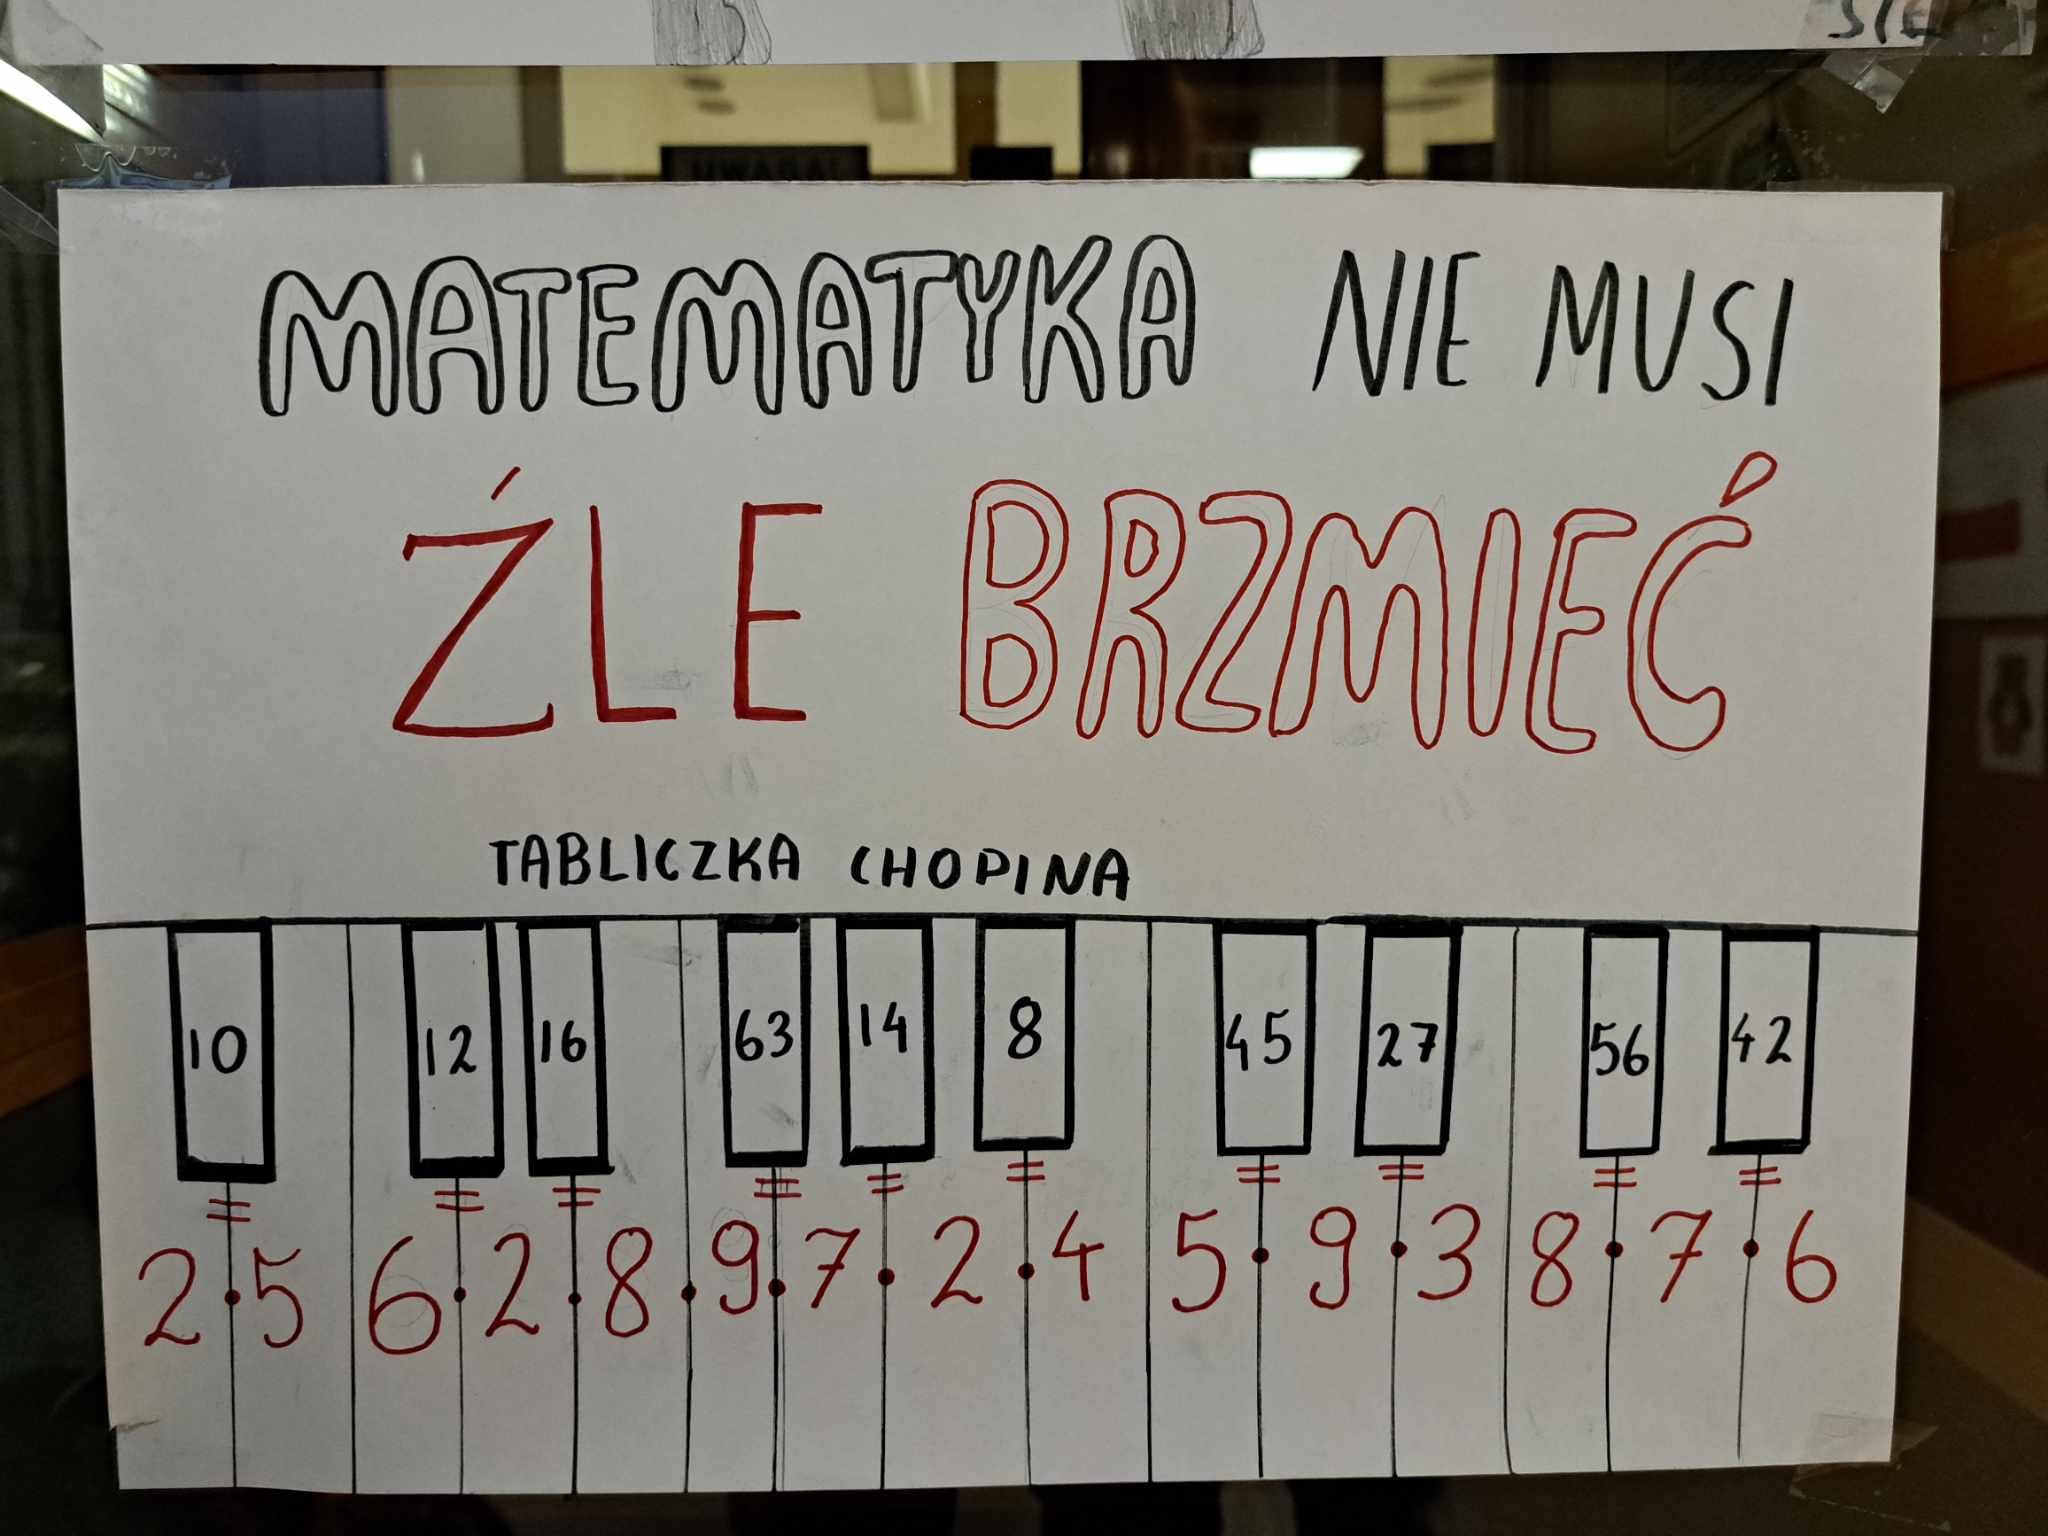 SIĘ
UWAGA!
MATEMATYKA NIE MUSI
ŹLE BRZMIEĆ
TABLICZKA CHOPINA
10 12 16 63 14 8 45 27 56 42
= = = = = = = = = =
2 • 5 6 • 2 • 8 • 9 • 7 • 2 • 4 5 • 9 • 3 8 • 7 • 6